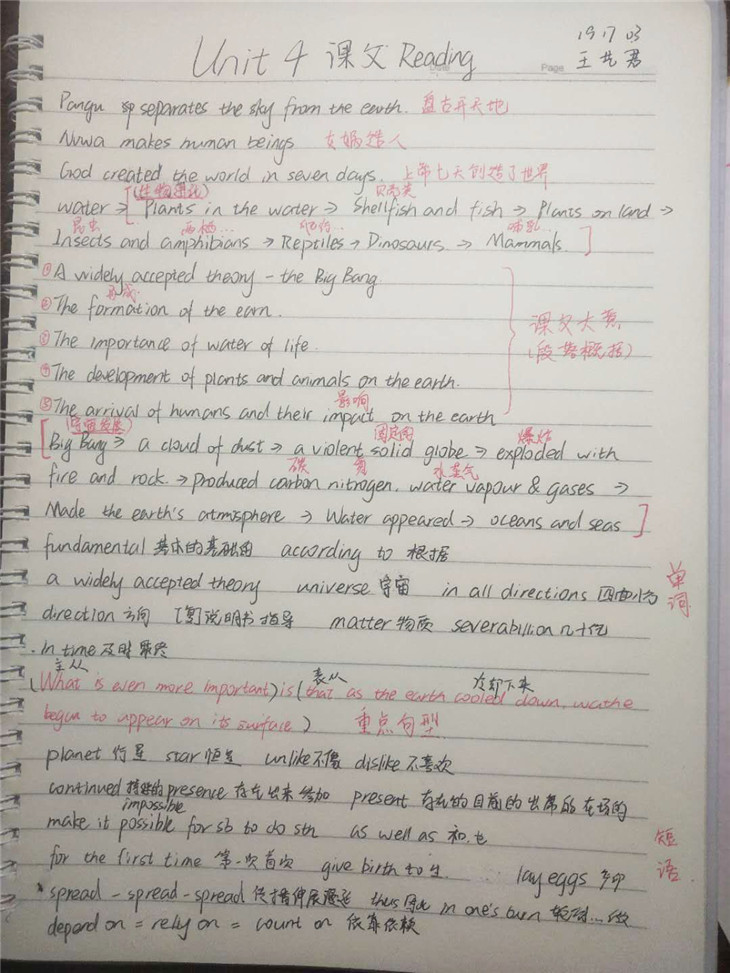 1917 03
Unit 4 课文 Reading
Page
Pangu sp separates the sky from the earth. 盘古开天地
Nuwa makes human beings 女娲造人
God created the world in seven days. 上帝七天创造了世界
(生物进化) 贝壳类
water → [Plants in the water → Shellfish and fish → Plants on land →
昆虫 两栖... 爬行... 哺乳...
Insects and amphibians → Reptiles → Dinosaurs → Mammals ]
①A widely accepted theory - the Big Bang.
形成
②The formation of the earn. 课文大意
③The importance of water of life. (段落概括)
④The development of plants and animals on the earth.
影响
⑤The arrival of humans and their impact on the earth
(宇宙发展) 固定的 爆炸
[Big Bang → a cloud of dust → a violent solid globe → exploded with
碳 氮 水蒸气
fire and rock. → produced carbon nitrogen. water vapour & gases →
Made the earth's atmosphere → Water appeared → oceans and seas ]
fundamental 基本的基础的 according to 根据
单词
a widely accepted theory universe 宇宙 in all directions 四面八方
direction 方向 [复]说明书 指导 matter 物质 severabillion 几十亿
in time 及时 最终
主从 表从 冷却下来
(What is even more important) is (that as the earth cooled down, wathe
begun to appear on its surface) 重点句型
planet 行星 star 恒星 unlike 不像 dislike 不喜欢
continued presence 存在 出来 参加 present 存在的 目前的 出席的 在场的
impossible
make it possible for sb to do sth as well as 和,也
短语
for the first time 第一次 首次 give birth to 生 lay eggs
spread - spread - spread 传播 伸展 蔓延 thus 因此 in one's turn
depend on = rely on = count on 依靠 依赖